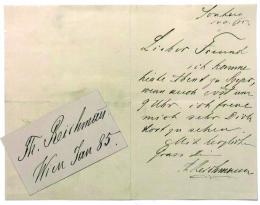 Lieber Freund
ich komme
heute Abend zu
wenn auch erst um
9 Uhr. ich freue
mich sehr Dich
dort zu sehen
Gruss
Th. Reichmann
Wien Jan 85.